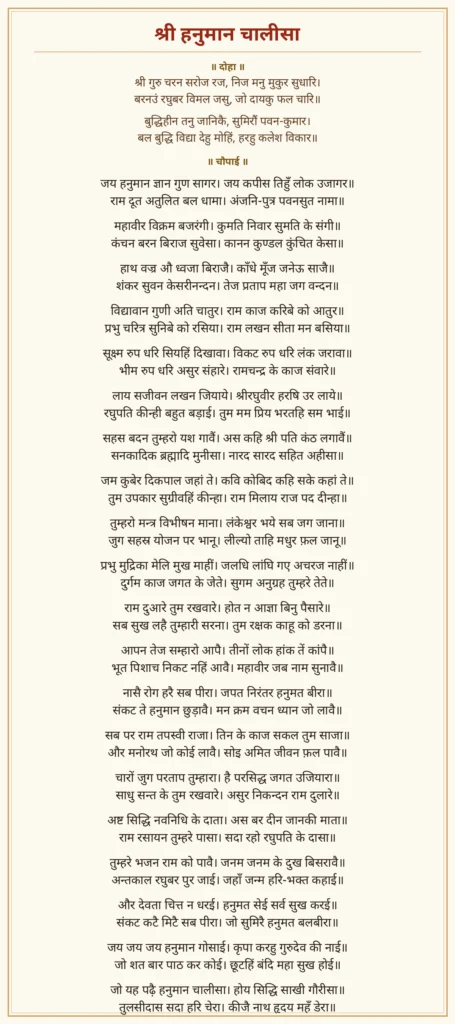 श्री हनुमान चालीसा
॥ दोहा ॥
श्री गुरु चरन सरोज रज, निज मनु मुकुर सुधारि।
बरनउं रघुबर विमल जसु, जो दायकु फल चारि॥
बुद्धिहीन तनु जानिकै, सुमिरौं पवन-कुमार।
बल बुद्धि विद्या देहु मोहिं, हरहु कलेश विकार॥
॥ चौपाई ॥
जय हनुमान ज्ञान गुण सागर। जय कपीस तिहुँ लोक उजागर॥
राम दूत अतुलित बल धामा। अंजनि-पुत्र पवनसुत नामा॥
महावीर विक्रम बजरंगी। कुमति निवार सुमति के संगी॥
कंचन बरन बिराज सुवेसा। कानन कुण्डल कुंचित केसा॥
हाथ वज्र औ ध्वजा बिराजै। काँधे मूँज जनेऊ साजै॥
शंकर सुवन केसरीनन्दन। तेज प्रताप महा जग वन्दन॥
विद्यावान गुणी अति चातुर। राम काज करिबे को आतुर॥
प्रभु चरित्र सुनिबे को रसिया। राम लखन सीता मन बसिया॥
सूक्ष्म रुप धरि सियहिं दिखावा। विकट रुप धरि लंक जरावा॥
भीम रुप धरि असुर संहारे। रामचन्द्र के काज संवारे॥
लाय सजीवन लखन जियाये। श्रीरघुवीर हरषि उर लाये॥
रघुपति कीन्ही बहुत बड़ाई। तुम मम प्रिय भरतहि सम भाई॥
सहस बदन तुम्हरो यश गावैं। अस कहि श्री पति कंठ लगावैं॥
सनकादिक ब्रह्मादि मुनीसा। नारद सारद सहित अहीसा॥
जम कुबेर दिकपाल जहां ते। कवि कोबिद कहि सके कहां ते॥
तुम उपकार सुग्रीवहिं कीन्हा। राम मिलाय राज पद दीन्हा॥
तुम्हरो मन्त्र विभीषन माना। लंकेश्वर भये सब जग जाना॥
जुग सहस्र योजन पर भानू। लील्यो ताहि मधुर फ़ल जानू॥
प्रभु मुद्रिका मेलि मुख माहीं। जलधि लांघि गए अचरज नाहीं॥
दुर्गम काज जगत के जेते। सुगम अनुग्रह तुम्हरे तेते॥
राम दुआरे तुम रखवारे। होत न आज्ञा बिनु पैसारे॥
सब सुख लहै तुम्हारी सरना। तुम रक्षक काहू को डरना॥
आपन तेज सम्हारो आपै। तीनों लोक हांक तें कांपै॥
भूत पिशाच निकट नहिं आवै। महावीर जब नाम सुनावै॥
नासै रोग हरै सब पीरा। जपत निरंतर हनुमत बीरा॥
संकट ते हनुमान छुड़ावै। मन क्रम वचन ध्यान जो लावै॥
सब पर राम तपस्वी राजा। तिन के काज सकल तुम साजा॥
और मनोरथ जो कोई लावै। सोइ अमित जीवन फ़ल पावै॥
चारों जुग परताप तुम्हारा। है परसिद्ध जगत उजियारा॥
साधु सन्त के तुम रखवारे। असुर निकन्दन राम दुलारे॥
अष्ट सिद्धि नवनिधि के दाता। अस बर दीन जानकी माता॥
राम रसायन तुम्हरे पासा। सदा रहो रघुपति के दासा॥
तुम्हरे भजन राम को पावै। जनम जनम के दुख बिसरावै॥
अन्तकाल रघुबर पुर जाई। जहाँ जन्म हरि-भक्त कहाई॥
और देवता चित्त न धरई। हनुमत सेई सर्व सुख करई॥
संकट कटै मिटै सब पीरा। जो सुमिरै हनुमत बलबीरा॥
जय जय जय हनुमान गोसाई। कृपा करहु गुरुदेव की नाई॥
जो शत बार पाठ कर कोई। छूटहिं बंदि महा सुख होई॥
जो यह पढ़ै हनुमान चालीसा। होय सिद्धि साखी गौरीसा॥
तुलसीदास सदा हरि चेरा। कीजै नाथ हृदय महँ डेरा॥